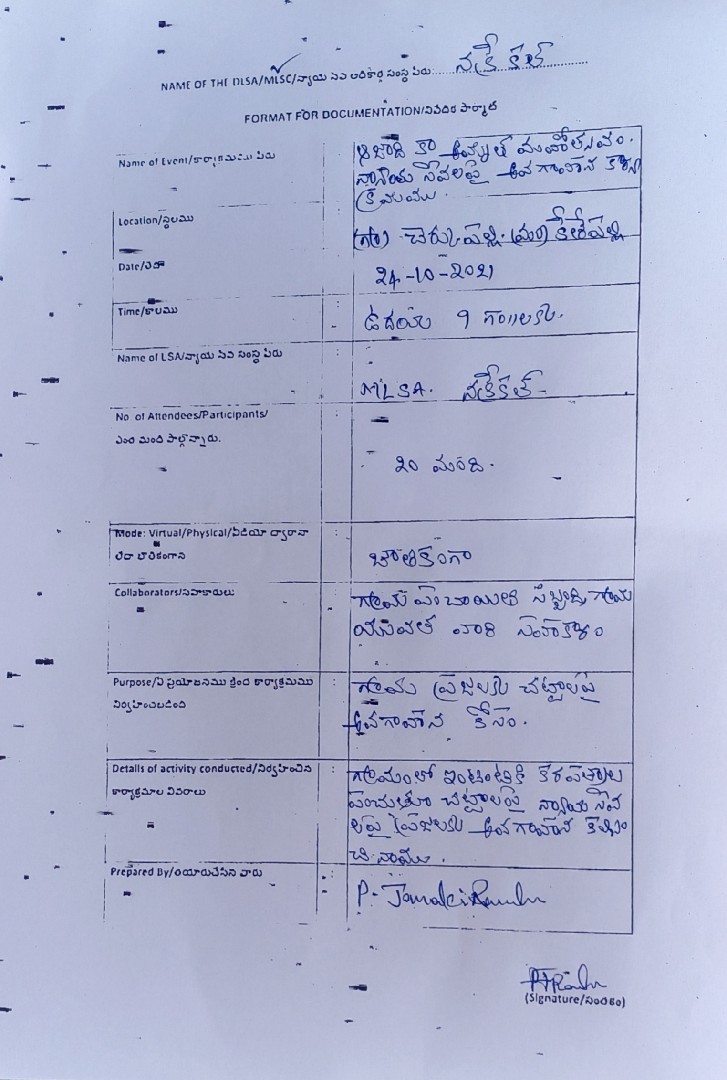 NAME OF THE DLSA/MLSC/న్యాయ సేవ అధికార సంస్థ పేరు...... నకిరేకల్
FORMAT FOR DOCUMENTATION/నివేదిక ఫార్మాట్
Name of Event/కార్యక్రమము పేరు : ఆజాది కా అమృత్ మహోత్సవం.
న్యాయ సేవలపై అవగాహన కార్య
క్రమము.
Location/స్థలము : (గ్రా) చెర్కుపల్లి. (మం) కేతేపల్లి
Date/తేదీ 24-10-2021
Time/కాలము : ఉదయం 9 గం॥లకు.
Name of LSA/న్యాయ సేవ సంస్థ పేరు :
MLSA. నకిరేకల్
No of Attendees/Participants/ :
ఎంత మంది పాల్గొన్నారు.
20 మంది.
Mode: Virtual/Physical/వీడియో ద్వారానా :
లేదా భౌతికంగాన భౌతికంగా
Collaborators/సహకారులు : గ్రామ పంచాయితి సిబ్బంది, గ్రామ
యువత వారి సహకారం
Purpose/ఏ ప్రయోజనము క్రింద కార్యక్రమము : గ్రామ ప్రజలకు చట్టాలపై
నిర్వహించబడింది అవగాహన కోసం.
Details of activity conducted/నిర్వహించిన : గ్రామంలో ఇంటింటికి కరపత్రాల
కార్యక్రమాల వివరాలు పంచుతూ చట్టాలపై న్యాయ సేవ
లపై ప్రజలకు అవగాహన కల్పిం
చినాము.
Prepared By/తయారుచేసిన వారు : P. JanakiRamulu
(Signature/సంతకం)